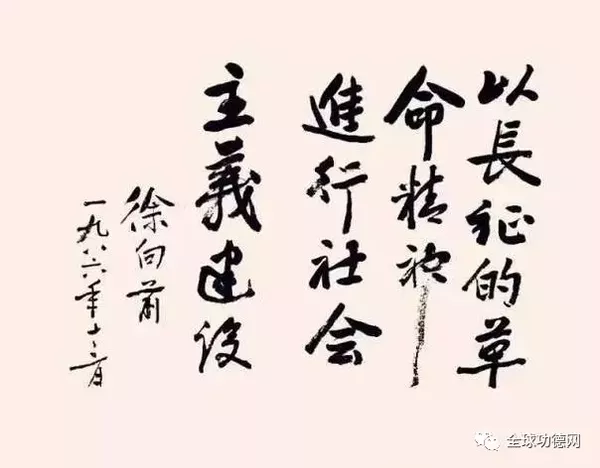 以長征的革
命精神
進行社会
主義建设
徐向前
一九八六年十二月
全球功德网